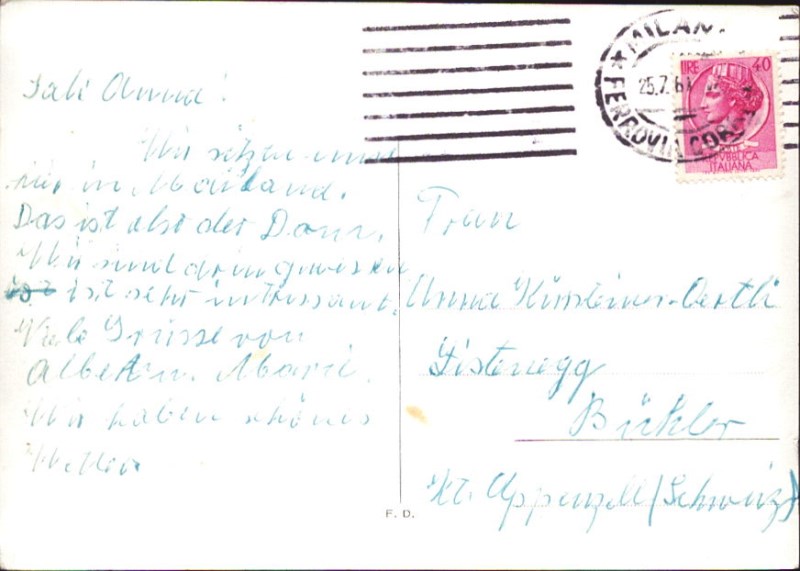 Sali Anna!
Wir sitzen nun
wir in Mailand.
Das ist also der Dom,
Wir sind drin gewesen
ist ist sehr intressant.
Viele Grüsse von
Albert u. Marie.
Wir haben schönes
Wetter
Frau
Anna Kürsteiner-Oertli
Bühler
Kt. Appenzell (Schweiz)
F. D.
MILANO
FERROVIA CORR
25.7.61
LIRE 40
REPVBBLICA
ITALIANA